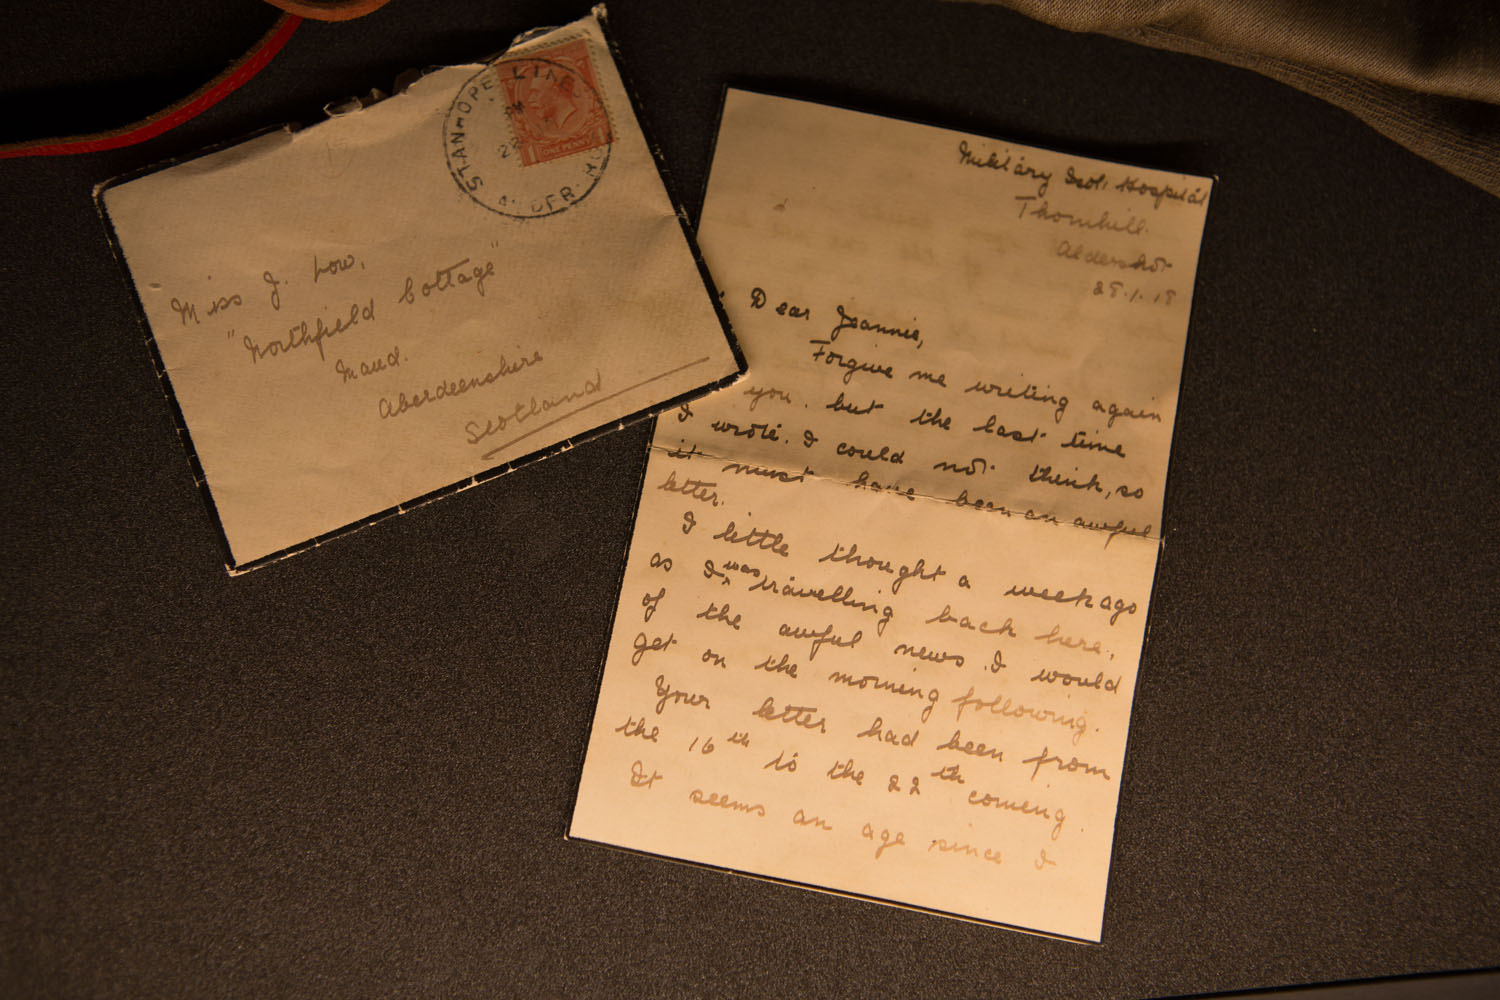 STANHOPE LINES
ALDERSHOT
ONE PENNY
Miss J. Low,
"Northfield Cottage"
Maud.
Aberdeenshire
Scotland
Military Isol. Hospital
Thornhill.
Aldershot
28.1.18
Dear Jeannie,
Forgive me writing again
you. but the last time
I wrote. I could not think, so
it must have been an awful
letter.
I little thought a week ago
as I was travelling back here,
of the awful news I would
get on the morning following.
Your letter had been from
the 16th to the 22th coming.
It seems an age since I